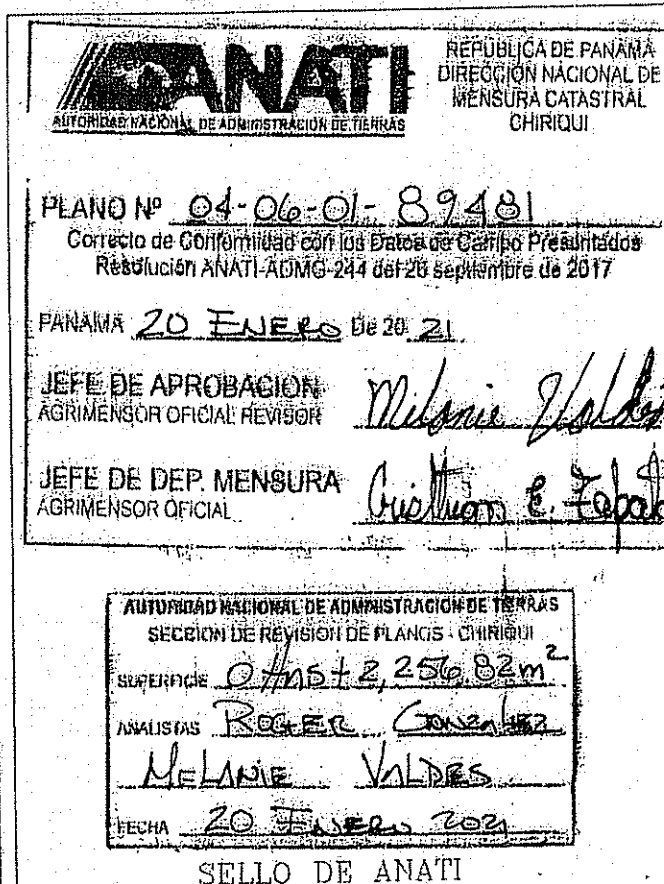 ANATI
AUTORIDAD NACIONAL DE ADMINISTRACIÓN DE TIERRAS
REPÚBLICA DE PANAMÁ
DIRECCIÓN NACIONAL DE
MENSURA CATASTRAL
CHIRIQUI
PLANO Nº 04-06-01-89481
Correcto de Conformidad con los Datos de Campo Presentados
Resolución ANATI-ADMG-244 del 26 septiembre de 2017
PANAMA 20 ENERO De 20 21
JEFE DE APROBACIÓN
AGRIMENSOR OFICIAL REVISOR
Melanie Valdés
JEFE DE DEP. MENSURA
AGRIMENSOR OFICIAL
Cristhian E. Zapata
AUTORIDAD NACIONAL DE ADMINISTRACIÓN DE TIERRAS
SECCION DE REVISION DE PLANOS - CHIRIQUI
SUPERFICIE 0 Has + 2,256.82 m²
ANALISTAS ROGER GONZALEZ
MELANIE VALDES
FECHA 20 ENERO 2021
SELLO DE ANATI